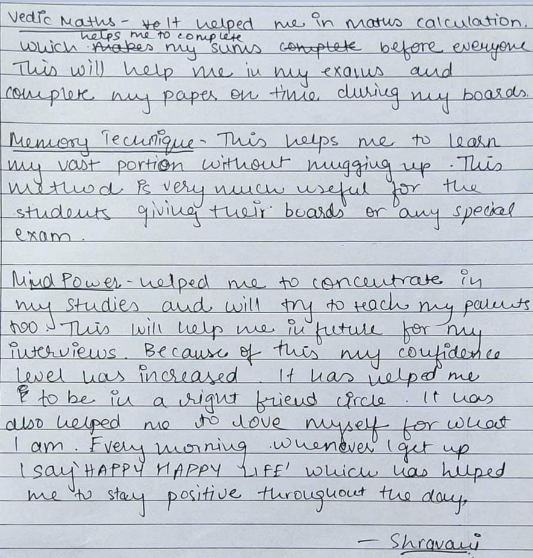 Vedic Maths - It helped me in maths calculation.
helps me to complete
which makes my sums complete before everyone
This will help me in my exams and
complete my paper on time during my boards.
Memory Technique - This helps me to learn
my vast portion without mugging up. This
method is very much useful for the
students giving their boards or any special
exam.
Mind Power - helped me to concentrate in
my studies and will try to teach my parents
too. This will help me in future for my
interviews. Because of this my confidence
level has increased. It has helped me
to be in a right friend circle. It has
also helped me to love myself for what
I am. Every morning whenever I get up
I say 'HAPPY HAPPY LIFE' which has helped
me to stay positive throughout the day.
- Shravani